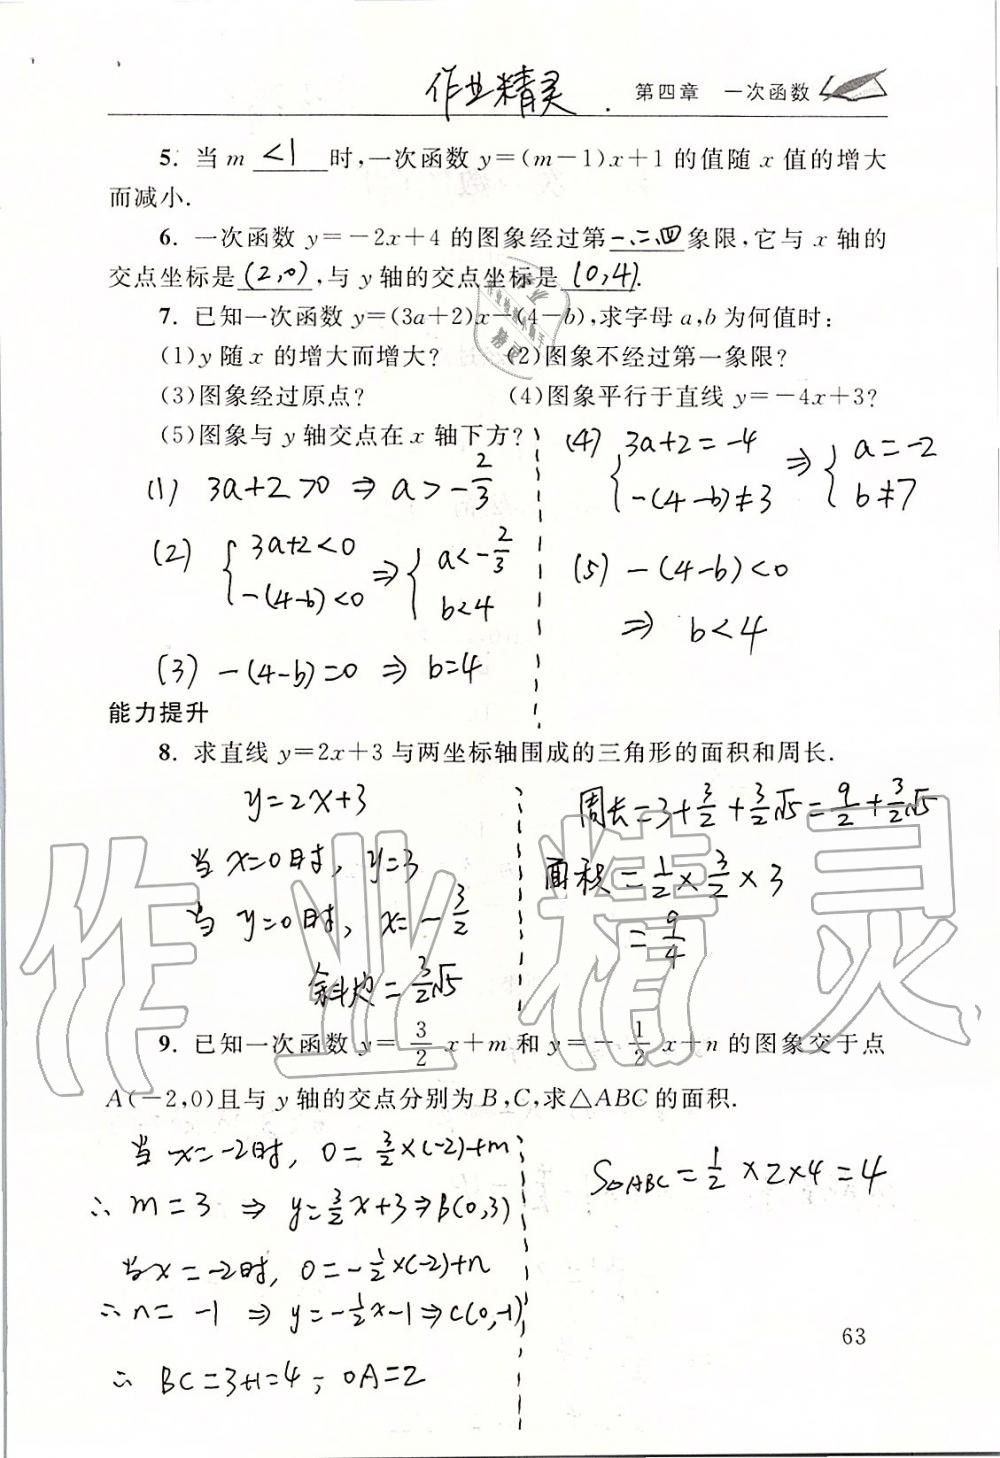 作业精灵
第四章 一次函数
5. 当 m <1 时,一次函数 y=(m-1)x+1 的值随 x 值的增大
而减小.
6. 一次函数 y=-2x+4 的图象经过第一、二、四象限,它与 x 轴的
交点坐标是 (2,0) ,与 y 轴的交点坐标是 (0,4).
7. 已知一次函数 y=(3a+2)x-(4-b),求字母 a,b 为何值时:
(1)y 随 x 的增大而增大? (2)图象不经过第一象限?
(3)图象经过原点? (4)图象平行于直线 y=-4x+3?
(5)图象与 y 轴交点在 x 轴下方?
(1) 3a+2>0 ⇒ a>-2/3
(2) { 3a+2<0 -(4-b)<0 ⇒ { a<-2/3 b<4
(3) -(4-b)=0 ⇒ b=4
(4) { 3a+2=-4 -(4-b)≠3 ⇒ { a=-2 b≠7
(5) -(4-b)<0
⇒ b<4
能力提升
8. 求直线 y=2x+3 与两坐标轴围成的三角形的面积和周长.
y=2x+3
当 x=0时, y=3
当 y=0时, x=-3/2
斜边=3/2√5
周长=3+3/2+3/2√5=9/2+3/2√5
面积=1/2×3/2×3
=9/4
9. 已知一次函数 y=3/2 x+m 和 y=-1/2 x+n 的图象交于点
A(-2,0)且与 y 轴的交点分别为 B,C,求△ABC 的面积.
当 x=-2时, 0=3/2×(-2)+m
∴ m=3 ⇒ y=3/2x+3⇒B(0,3)
当x=-2时, 0=-1/2×(-2)+n
∴ n=-1 ⇒ y=-1/2x-1⇒C(0,-1)
∴ BC=3+1=4, OA=2
S△ABC=1/2×2×4=4
63
作业精灵